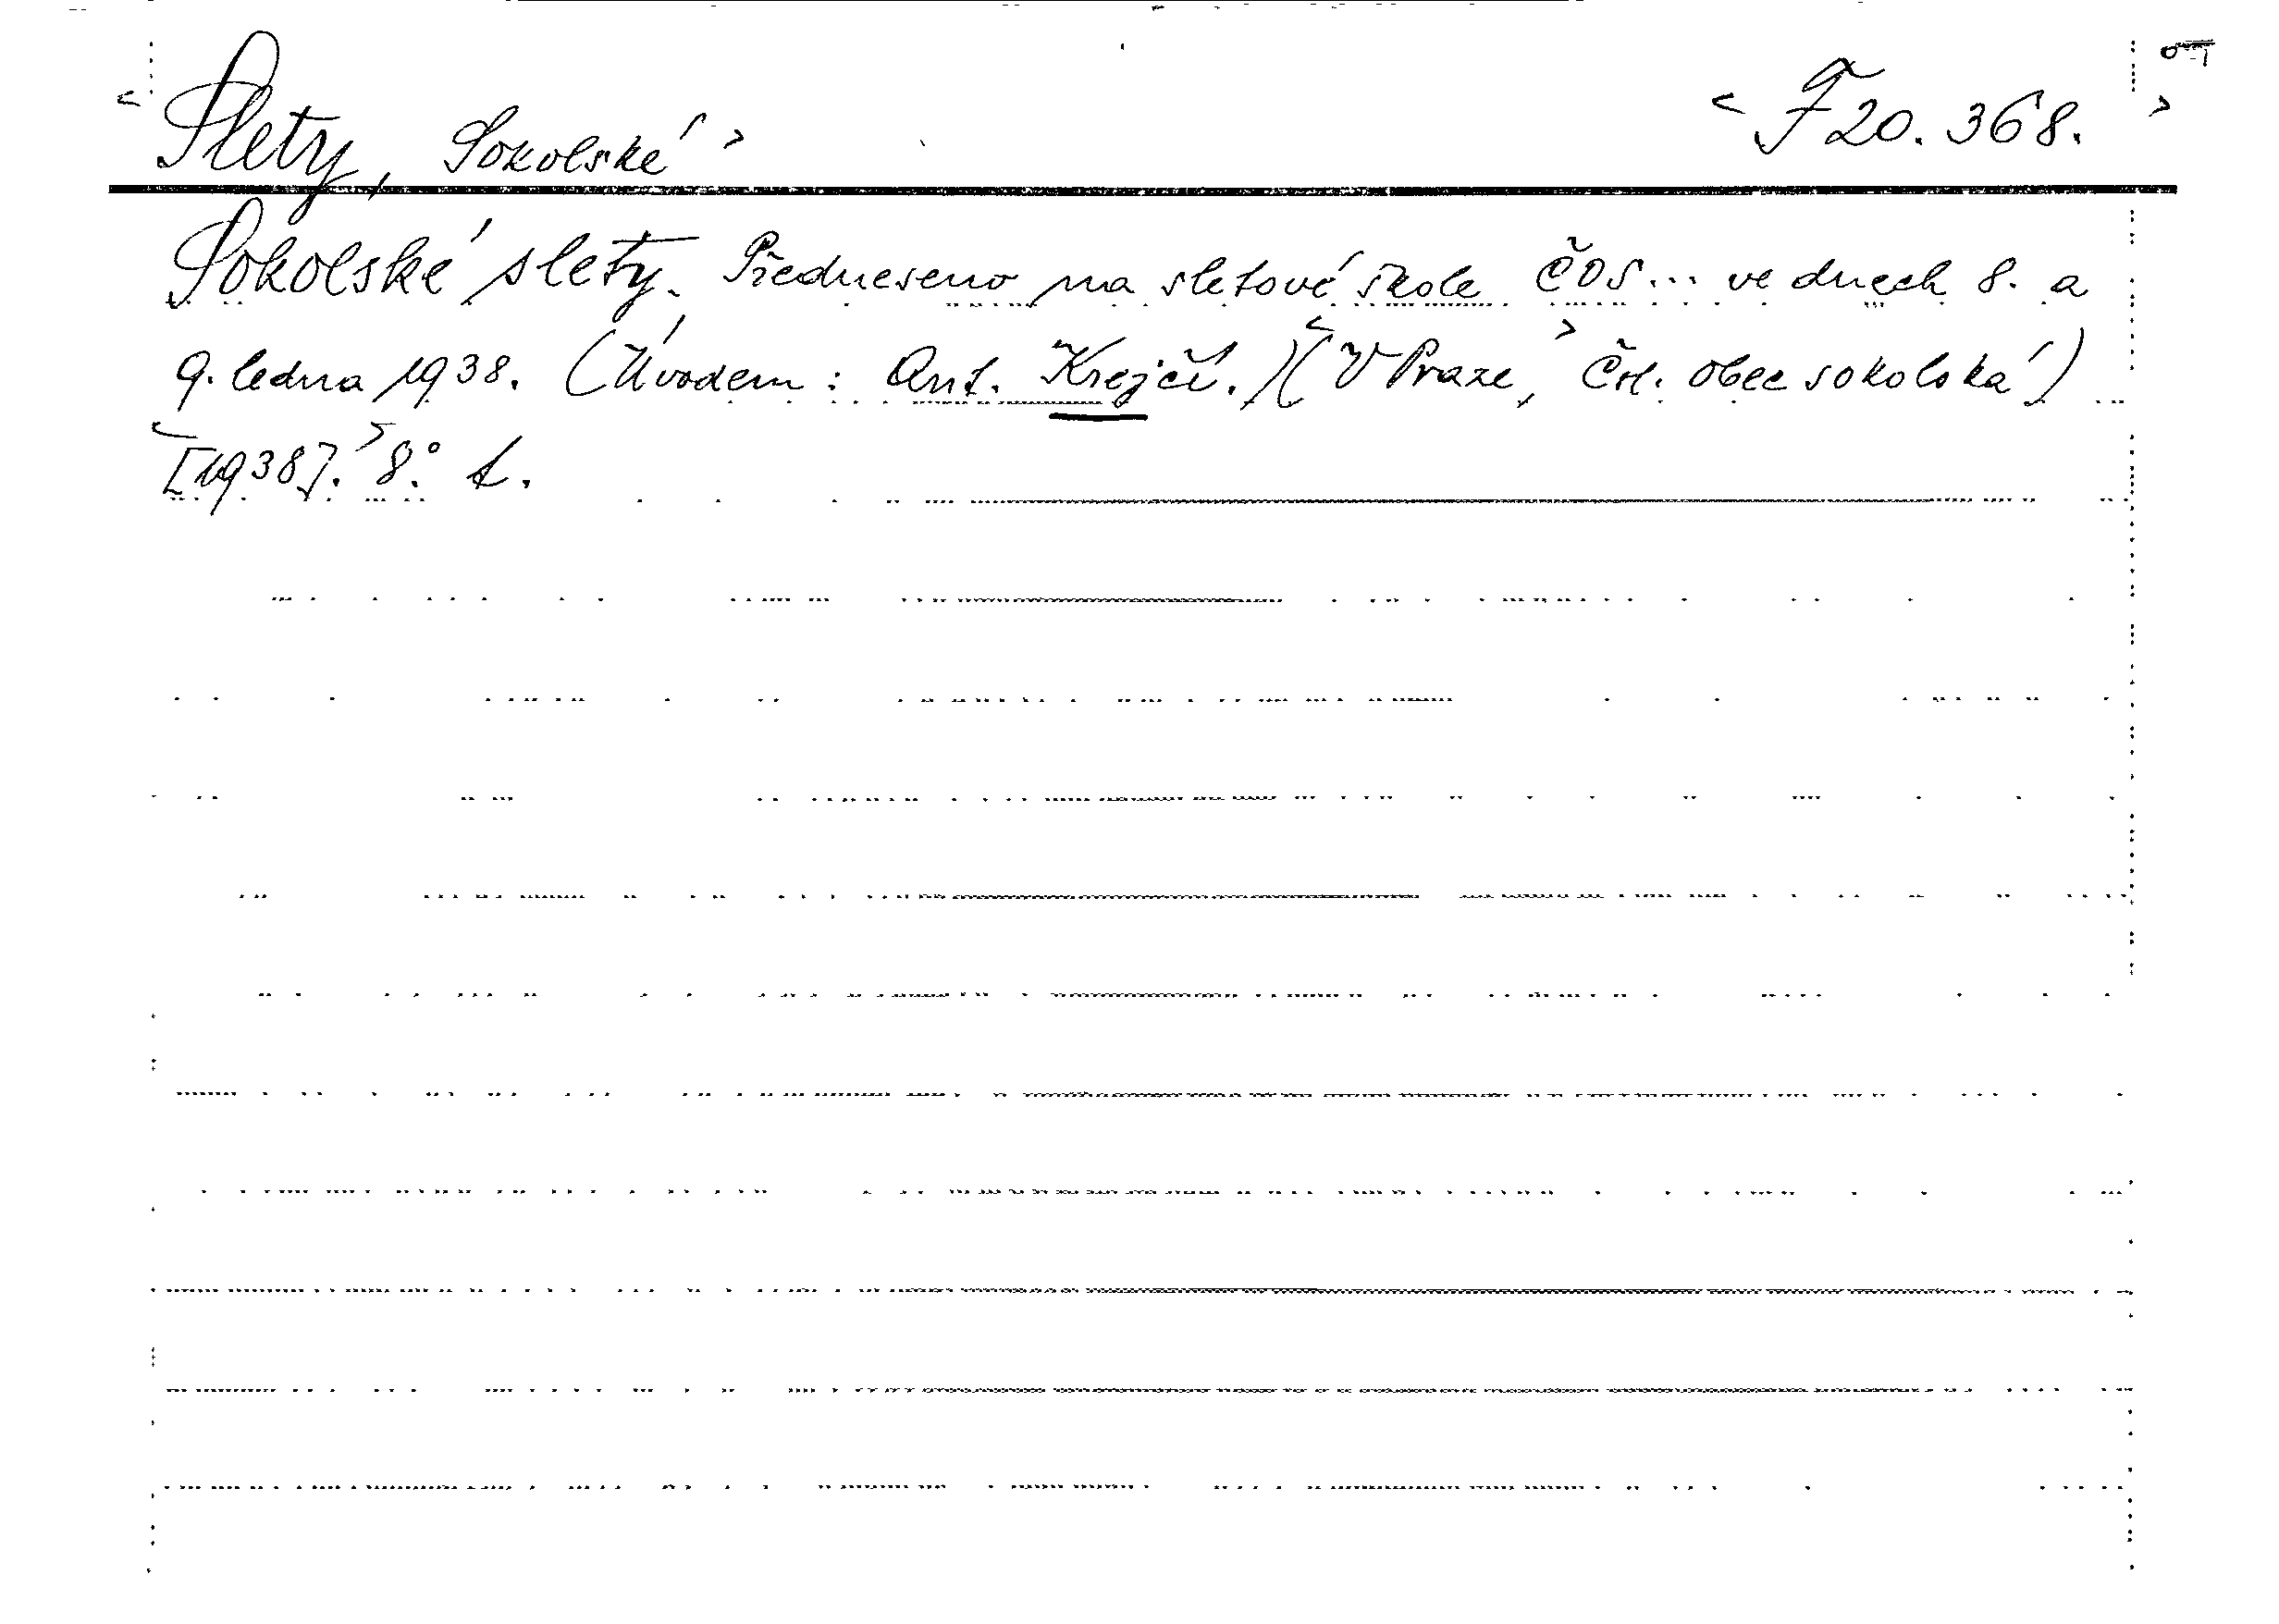 < Slety, Sokolské > < F 20. 368. >
Sokolské slety. Předneseno na sletové škole ČOS... ve dnech 8. a
9. ledna 1938. (Úvodem: Ant. Krejčí.) (< V Praze, > Čsl. obec sokolská)
< [1938]. > 8.°